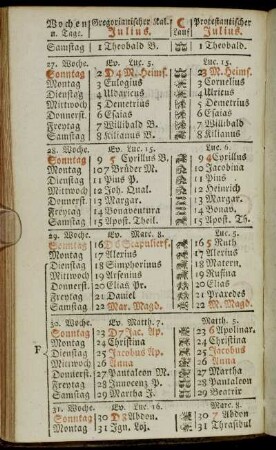 Wochen Gregorianischer Kal. C Protestantischer
u. Tage. Julius. Lauf Julius.
Samstag 1 Theobald B. 1 Theobald.
27. Woche. Ev. Luc. 5. Luc. 15.
Sonntag 2 D 4 M. Heims. 2 3 M. Heims.
Montag 3 Eulogius 3 Cornelius
Dienstag 4 Udaricus 4 Ulricus
Mittwoch 5 Demetrius 5 Demetrius
Donnerst. 6 Esaias 6 Esaias
Freytag 7 Wilibald B. 7 Wilibald
Samstag 8 Kilianus B. 8 Kilianus
28. Woche. Ev. Luc. 15. Luc. 6.
Sonntag 9 5 Cyrillus B. 9 4 Cyrillus
Montag 10 7 Brüder M. 10 Jacobina
Dienstag 11 Pius P. 11 Pius
Mittwoch 12 Joh. Qual. 12 Heinrich
Donnerst. 13 Margar. 13 Margar.
Freytag 14 Bonaventura 14 Bonav.
Samstag 15 Apost. Theil. 15 Apost. Th.
29. Woche. Ev. Marc. 8. Luc. 5.
Sonntag 16 D 6 Scapulierf. 16 5 Ruth
Montag 17 Alexius 17 Alexius
Dienstag 18 Simphorinus 18 Matern.
Mittwoch 19 Arsenius 19 Rufina
Donnerst. 20 Elias Pr. 20 Elias
Freytag 21 Daniel 21 Praxedes
Samstag 22 Mar. Magd. 22 M. Magd.
30. Woche. Ev. Matth. 7. Matth. 5.
Sonntag 23 D 7 Ap. 23 6 Apolinar.
Montag 24 Christina 24 Christina
F Dienstag 25 Jacobus Ap. 25 Jacobus
Mittwoch 26 Anna 26 Anna
Donnerst. 27 Pantaleon M. 27 Martha
Freytag 28 Innocenz P. 28 Pantaleon
Samstag 29 Martha J. 29 Beatrix
31. Woche. Ev. Luc. 16. Marc. 8.
Sonntag 30 D 8 Abdon 30 7 Abdon
Montag 31 Ign. Loj. 31 Thrasibul